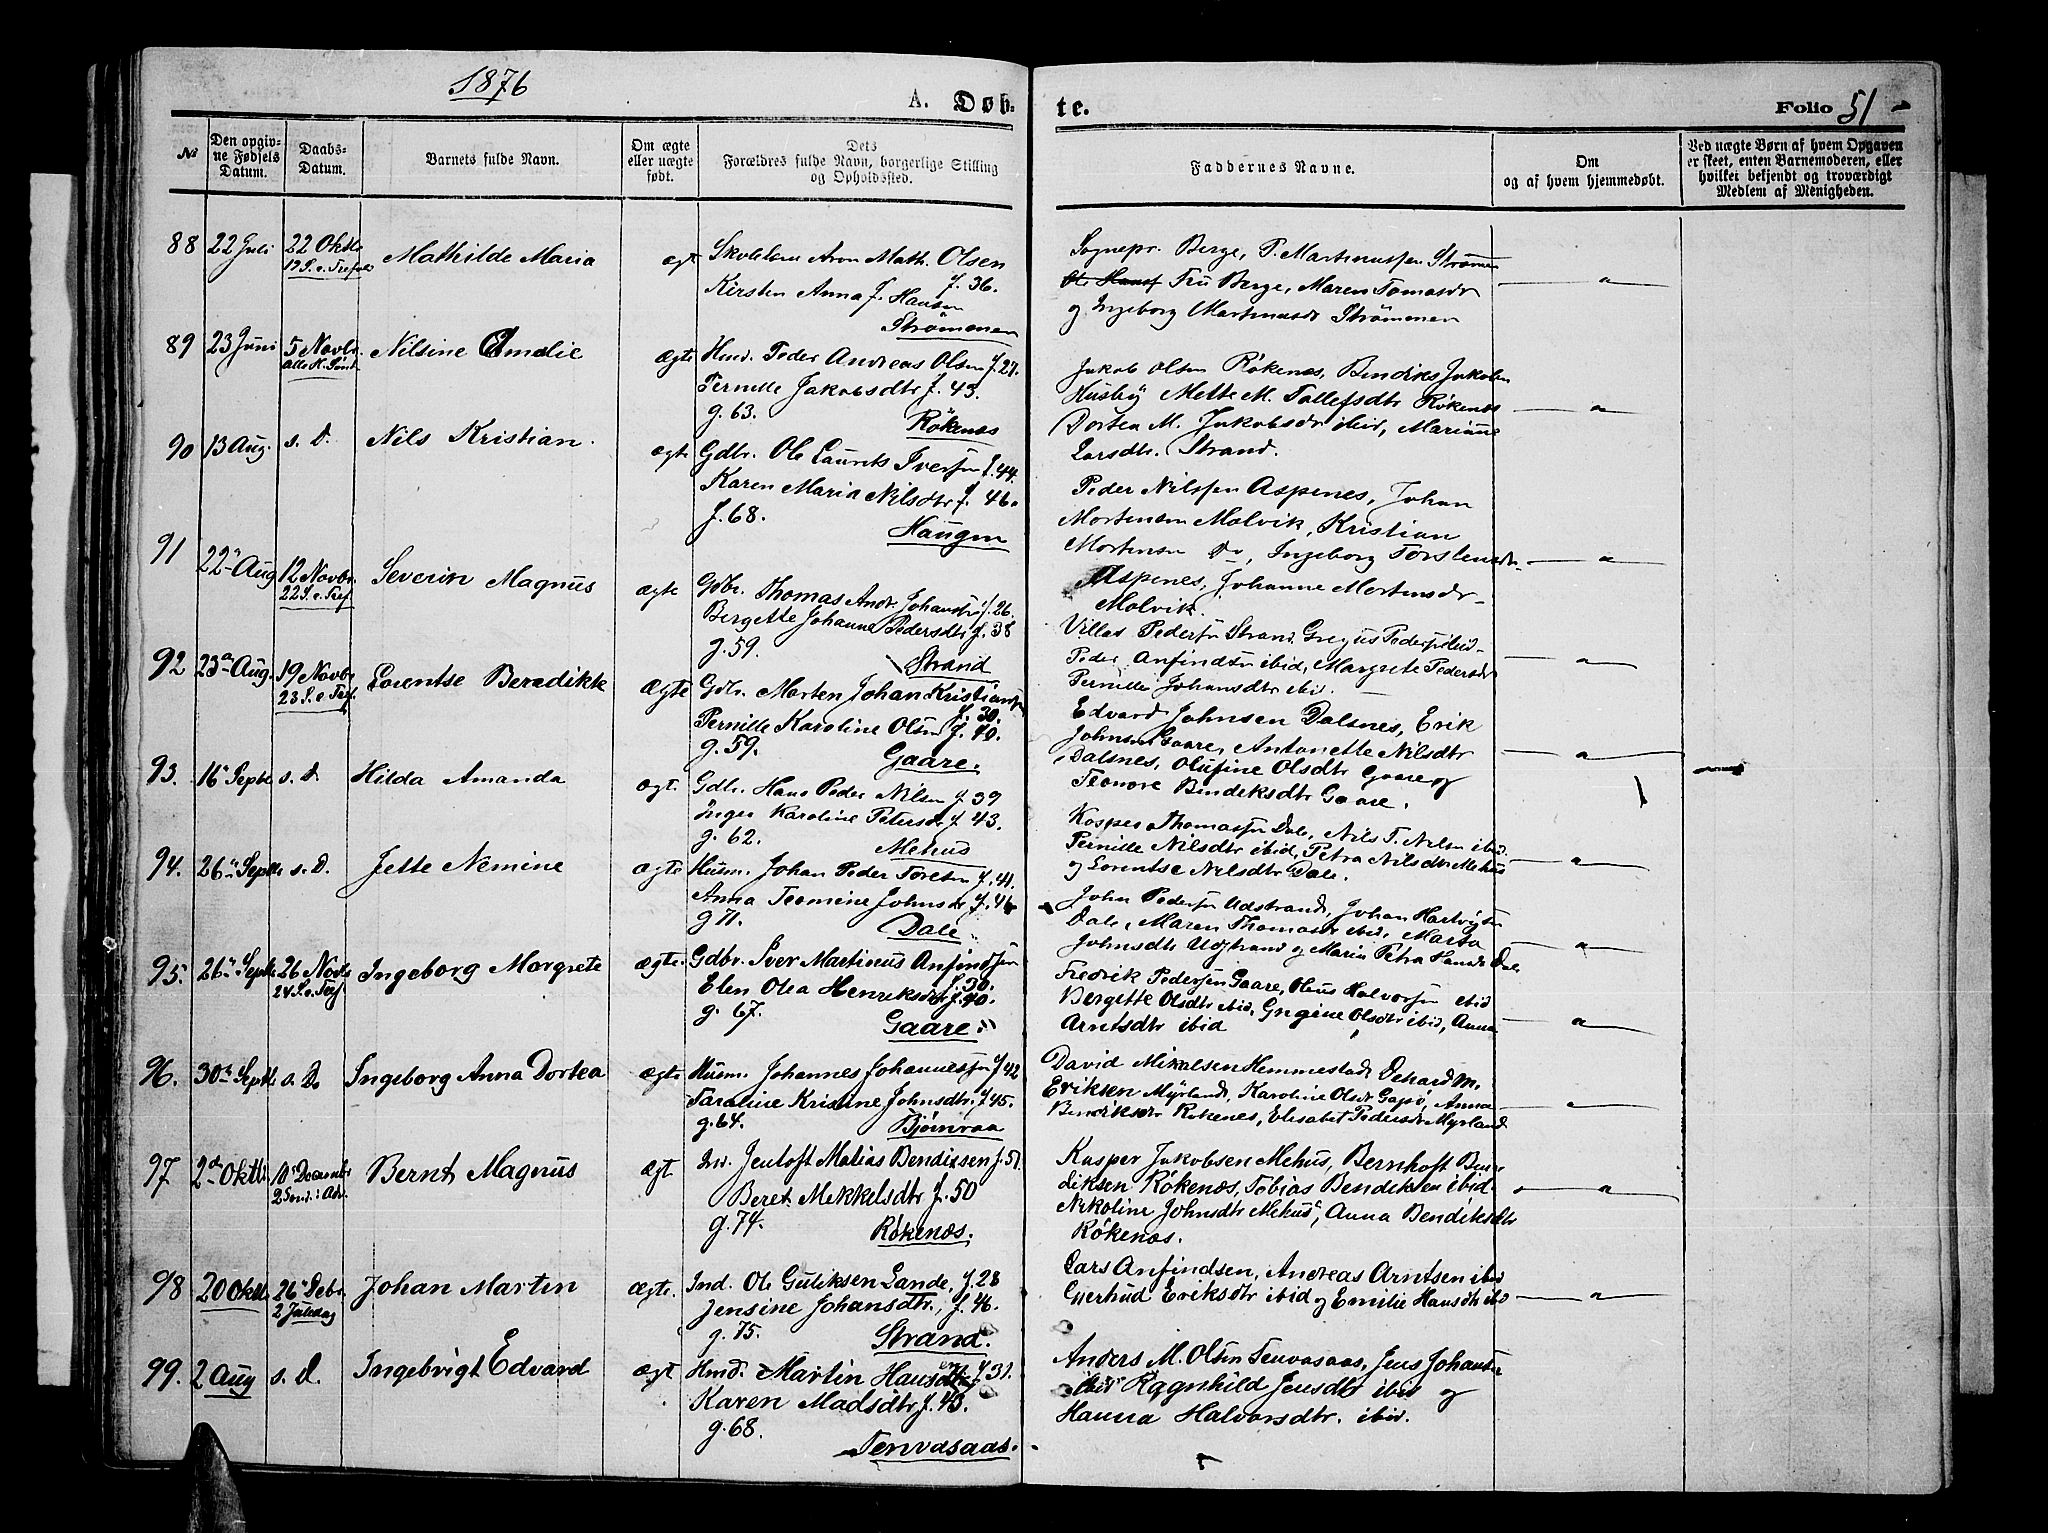 1876
A. Døb-
te.
Folio 51
№
Den opgiv-
ne Fødsels
Datum.
Daabs-
Datum.
Barnets fulde Navn.
Om ægte
eller uægte
født.
Dets
Forældres fulde Navn, borgerlige Stilling
og Opholdssted.
Faddernes Navne.
Om
og af hvem hjemmedøbt.
Ved uægte Børn af hvem Opgaven
er skeet, enten Barnemoderen, eller
hvilket bekjendt og troværdigt
Medlem af Menigheden.
88 22 Juli 22 Oktb Mathilde Maria ægt
Aron Math. Olsen
f. 36.
Kirsten Anna J. Hansen
Strømmen
Sognepr. Berge, P. Martinussen Strømen
Fru Berge, Maren Tomasdr
og Ingeborg Martinusdr Strømmen
89 23 Juni 5 Novbr. Nilsine Amalie ægte
Hmd. Peder Andreas Olsen f. 27.
Pernille Jakobsdtr f. 43.
g. 63. Røkenæs
Jakob Olsen Røkenæs, Bendiks Jakobsen
Husby Mette M. Tollefsdtr Røkenæs
Dortea M. Jakobsdr ibid, Marianne
Larsdtr. Strand.
90 13 Aug. s. D. Nils Kristian. ægte
Gdbr. Ole Laurits Iversen f. 44.
Karen Maria Nilsdtr f. 46.
f. 68.
Haugen
Peder Nilssen Aspenes, Johan
Mortensen Molvik, Kristian
Mortensen do, Ingeborg Torstensdr
Aspenes, Johanne Mortensdr
Molvik.
91 22 Aug 12 Novbr. Severin Magnus ægte
22 S. e. Tref.
Gdbr. Thomas Andr. Johansen f. 26.
Bergette Johanne Pedersdtr f. 38
g. 59.
Strand
Villas Pedersen Strand, Gregus Pedersen ibid
Peder Anfindsen ibid, Margrete Pedersdr
Pernille Johansdtr ibid.
92 23 Aug. 19 Novbr Lorentse Beredikke ægte
23 S. e. Tref.
Gdbr. Morten Johan Kristiansen
f. 30.
Pernille Karoline Olsen f. 40.
g. 59. Gaare.
Edvard Johnsen Dalsnes, Erik
Johnsen Gaare, Antonette Nilsdtr
Dalsnes, Olufine Olsdtr Gaare og
Leonore Bendeksdtr Gaare.
93. 16 Septb s. D. Hilda Amanda ægt.
Gdbr. Hans Peder Nilsen f. 39
Inger Karoline Petersdr f. 43.
g. 62. Mehus
Kasper Thomassen Dale, Nils T. Nilsen ibid
Pernille Nilsdtr ibid, Petra Nilsdtr Mehus
og Lorentse Nilsdtr Dale.
94. 26 Septb s. D. Jette Nemine ægte
Husm. Johan Peder Toresen f. 41.
Anna Leomine Johnsdr f. 46
g 71. Dale
John Pedersen Udstrand, Johan Hartvigsen
Dale, Maren Thomasdr ibid, Marta
Johnsdtr Udstrand og Maria Petra Hansdr Dale
95. 26 Septb 26 Novb Ingeborg Margrete ægte.
24 S. e. Tref.
Gdbr. Iver Martinus Anfindsen
f. 30.
Elen Olea Henriksdtr f. 40.
g. 67. Gaare.
Fredrik Pedersen Gaare, Olaus Halvorsen ibid
Bergette Olsdtr ibid, Gregine Olsdtr ibid, Anna
Arntsdtr ibid
96. 30 Septb s. D. Ingeborg Anna Dortea ægte
Husm. Johannes Johannessen f 42
Taraline Kristine Johnsdtr. f 45.
g. 64. Bjørnraa
David Mikalsen Hemmestad, Dehard M.
Eriksen Myrland, Karoline Olsdr Gapø, Anna
Bendiksdr Røkenes, Elisabet Pedersdr Myrland
97 2 Oktb. 10 Decembr Bernt Magnus ægt
2 Sønd. i Adv.
Ind. Jentoft Matias Bendixsen f. 51.
Beret Mekkelsdtr f. 50
g. 74.
Røkenæs.
Kasper Jakobsen Mehus, Bernhoft Ben-
diksen Røkenæs, Tobias Bendiksen ibid.
Nikoline Johnsdtr Mehus, Anna Bendiksdtr
Røkenæs.
98 20 Oktb. 26 Debr. Johan Martin ægte.
2 Juledag
Ind. Ole Guliksen Sande, f. 28
Jensine Johansdtr., f. 46.
g. 75.
Strand.
Lars Anfindsen, Andreas Arntsen ibid
Gjertrud Eriksdtr ibid og Emilie Hansdtr ibid
99. 2 Aug s. D. Ingebrigt Edvard ægt
Hmd. Martin Hansen f. 31.
Karen Madsdtr f. 43.
g. 68.
Tenvasaas.
Anders M. Olsen Tenvasaas, Jens Johansen
ibid Ragnhild Jensdtr ibid og
Hanna Halvorsdtr. ibid.